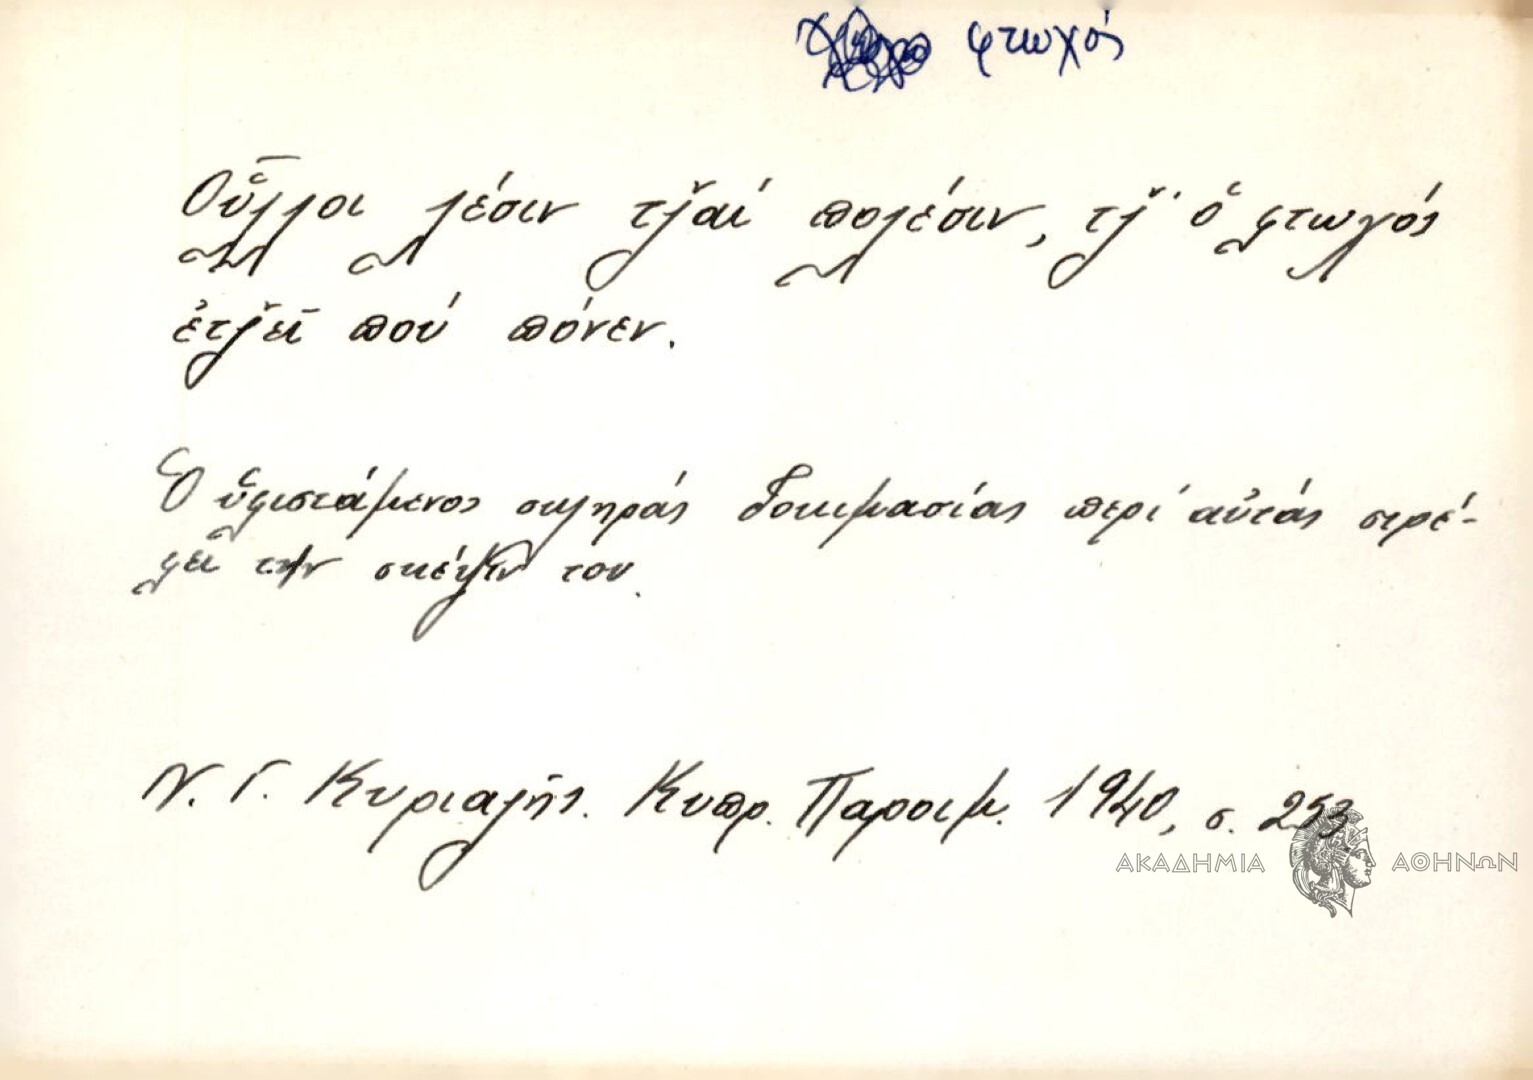 φτωχός
Οὗλλοι λέσιν τζ̆αί πολέσιν, τζ̆' ὁ φτωχός
ἐτζ̆εῖ πού πόνεν.
Ὁ ὑφιστάμενος σκληράς δοκιμασίας περί αὐτάς στρέ-
φει την σκέψιν του.
Ν. Γ. Κυριαζῆς. Κυπρ. Παροιμ. 1940, σ. 253
ΑΚΑΔΗΜΙΑ ΑΘΗΝΩΝ